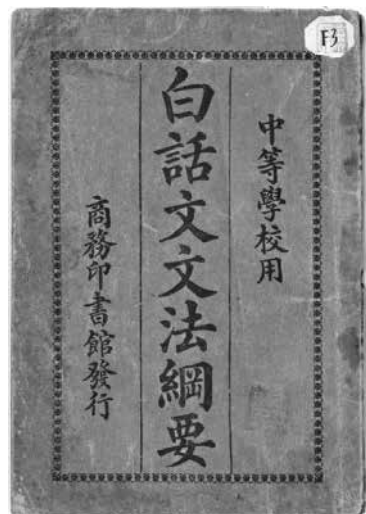 F3
中等學校用
白話文文法綱要
商務印書館發行